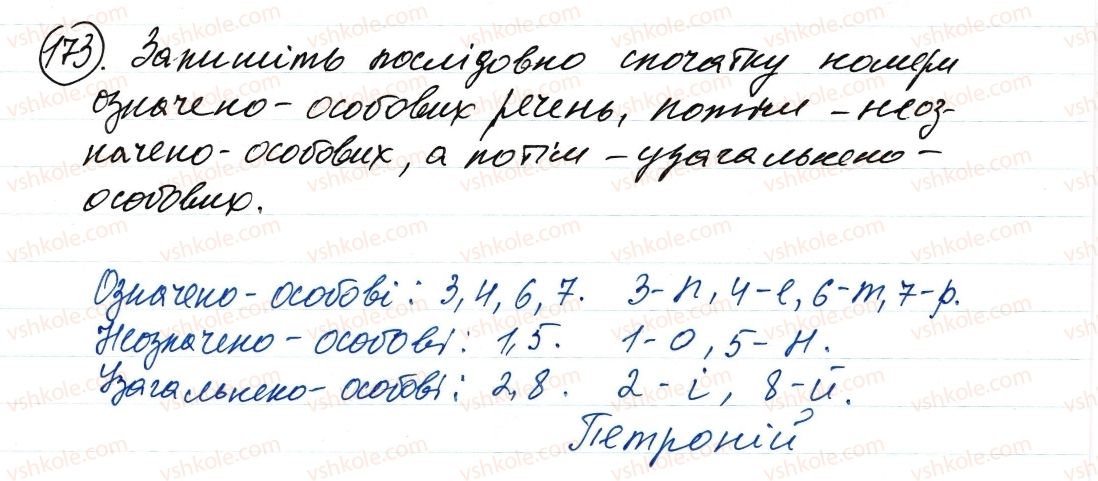 173. Запишіть послідовно спочатку номери
означено-особових речень, потім - неоз-
начено-особових, а потім - узагальнено-
особових.
Означено-особові: 3, 4, 6, 7. 3-п, 4-е, 6-т, 7-р.
Неозначено-особові: 1, 5. 1-о, 5-н.
Узагальнено-особові: 2, 8. 2-і, 8-й.
Петроній
vshkole.com